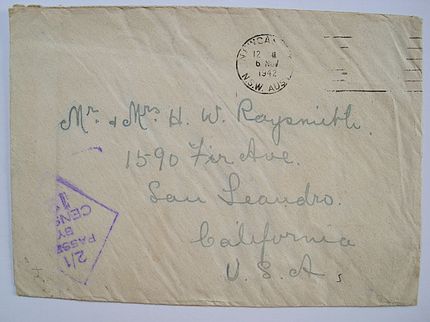 12
6 NOV
1942
N.S.W. AUST
Mr. & Mrs H. W. Raysmith.
1590 Fir Ave.
San Leandro.
California
U.S.A
2/1
PASSED
BY
CENS